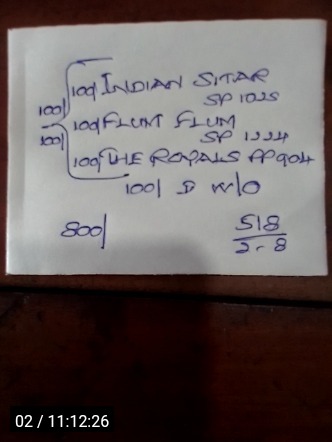 100/ 100/ INDIAN SITAR
SP 1025
100/ 100/ FLUM FLUM
SP 1224
100/ THE ROYALS PP 904
100/ D W/O
800/
518
2-8
02 / 11:12:26